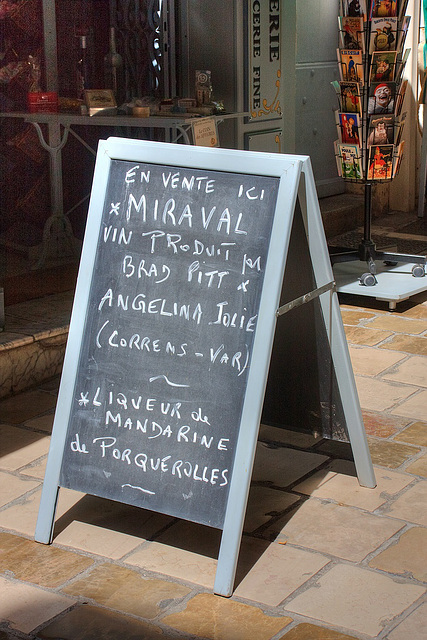 ERIE
CERIE FINE
EN VENTE ICI
* MIRAVAL
VIN PRODUIT par
BRAD PITT &
ANGELINA JOLIE
(CORRENS - VAR)
~
* LIQUEUR de
MANDARINE
de PORQUEROLLES
~